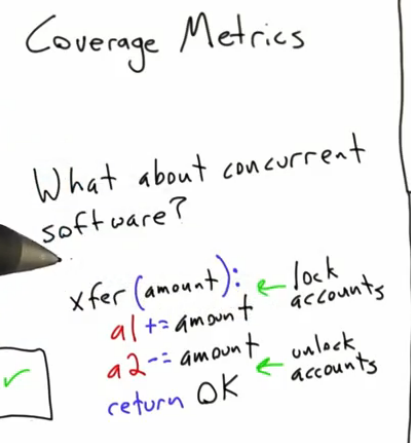 Coverage Metrics
What about concurrent
software?
xfer (amount): ← lock
accounts
a1 += amount
a2 -= amount ← unlock
accounts
return OK